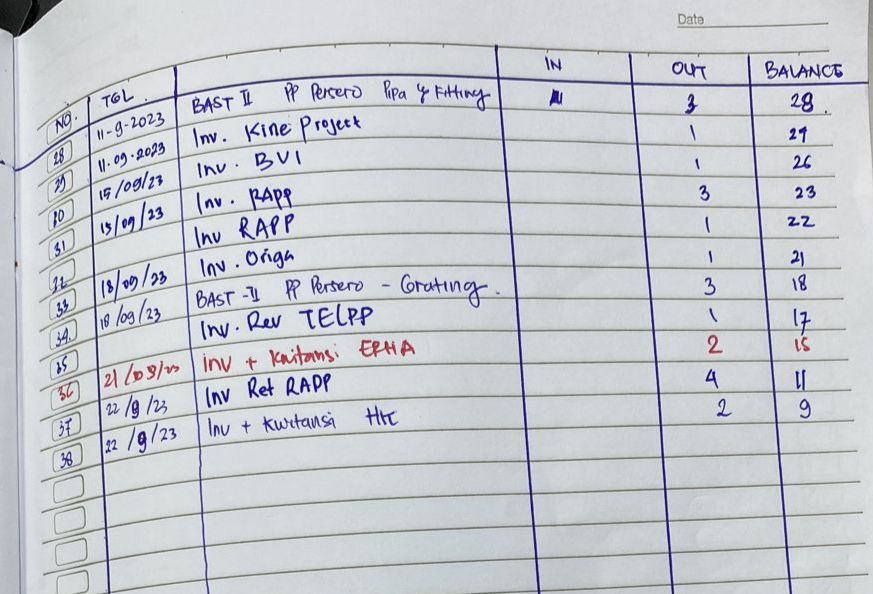 Date
NO. TGL. IN OUT BALANCE
28 11-9-2023 BAST II PP Persero Pipa & Fitting 3 28.
29 11.09.2023 Inv. Kine Project 1 27
30 15/09/23 Inv. BVI 1 26
31 15/09/23 Inv. RAPP 3 23
32 Inv RAPP 1 22
33 18/09/23 Inv. Origa 1 21
34. 18/09/23 BAST-II PP Persero - Grating. 3 18
35 Inv. Rev TELPP 1 17
36 21/09/23 inv + Kwitansi EPHA 2 15
37 22/9/23 Inv Ret RAPP 4 11
38 22/9/23 Inv + Kwitansi HK 2 9